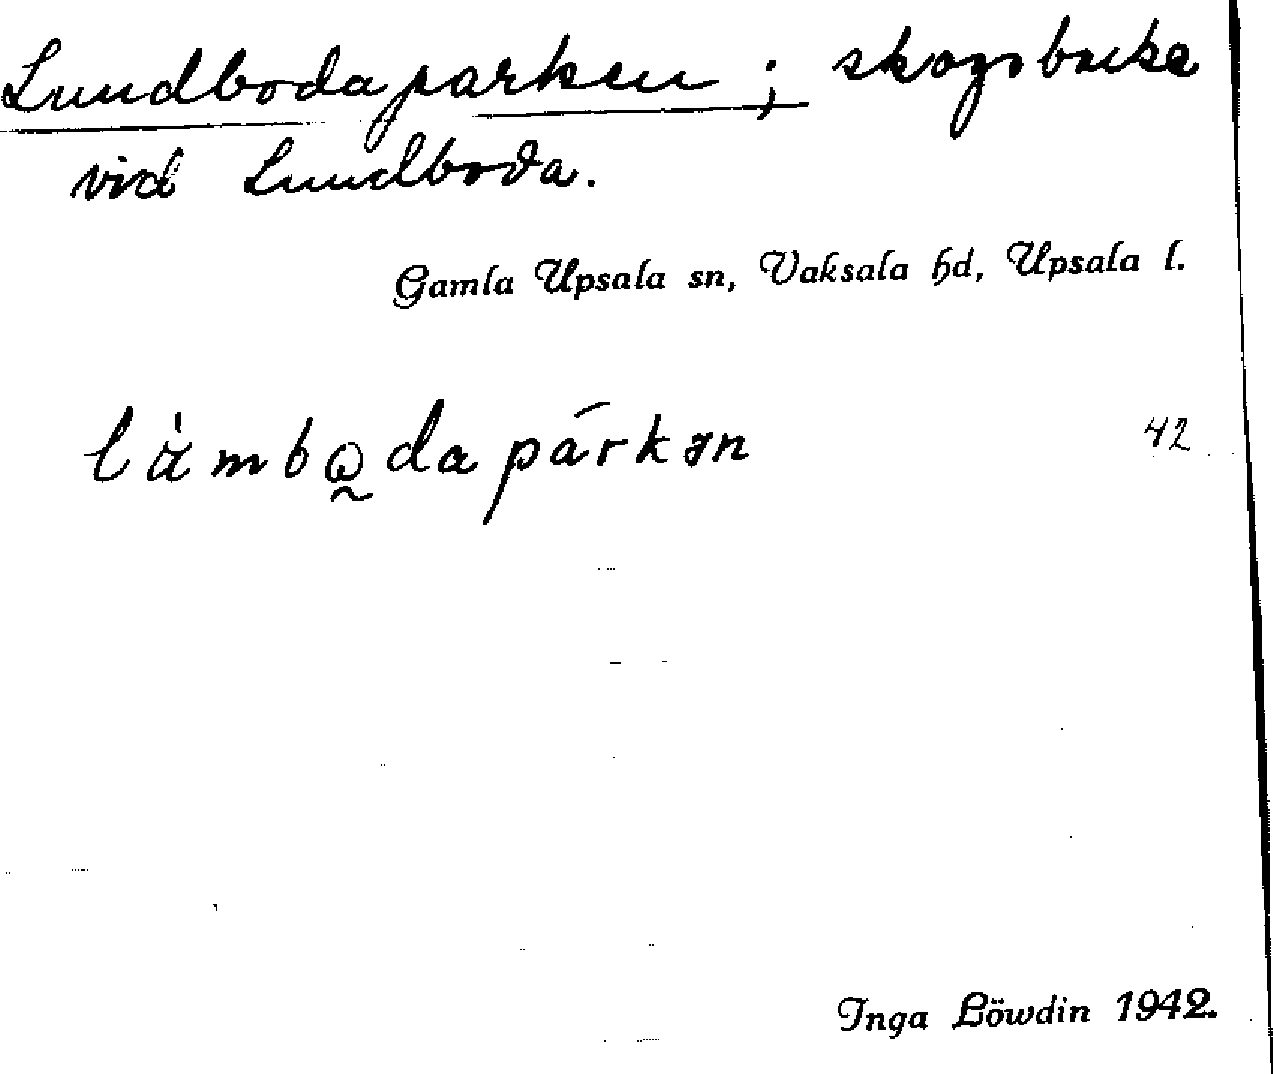 Lundbodaparken; skogsbacke
vid Lundboda.
Gamla Upsala sn, Vaksala hd, Upsala l.
lambodaparkən 42
Inga Löwdin 1942.